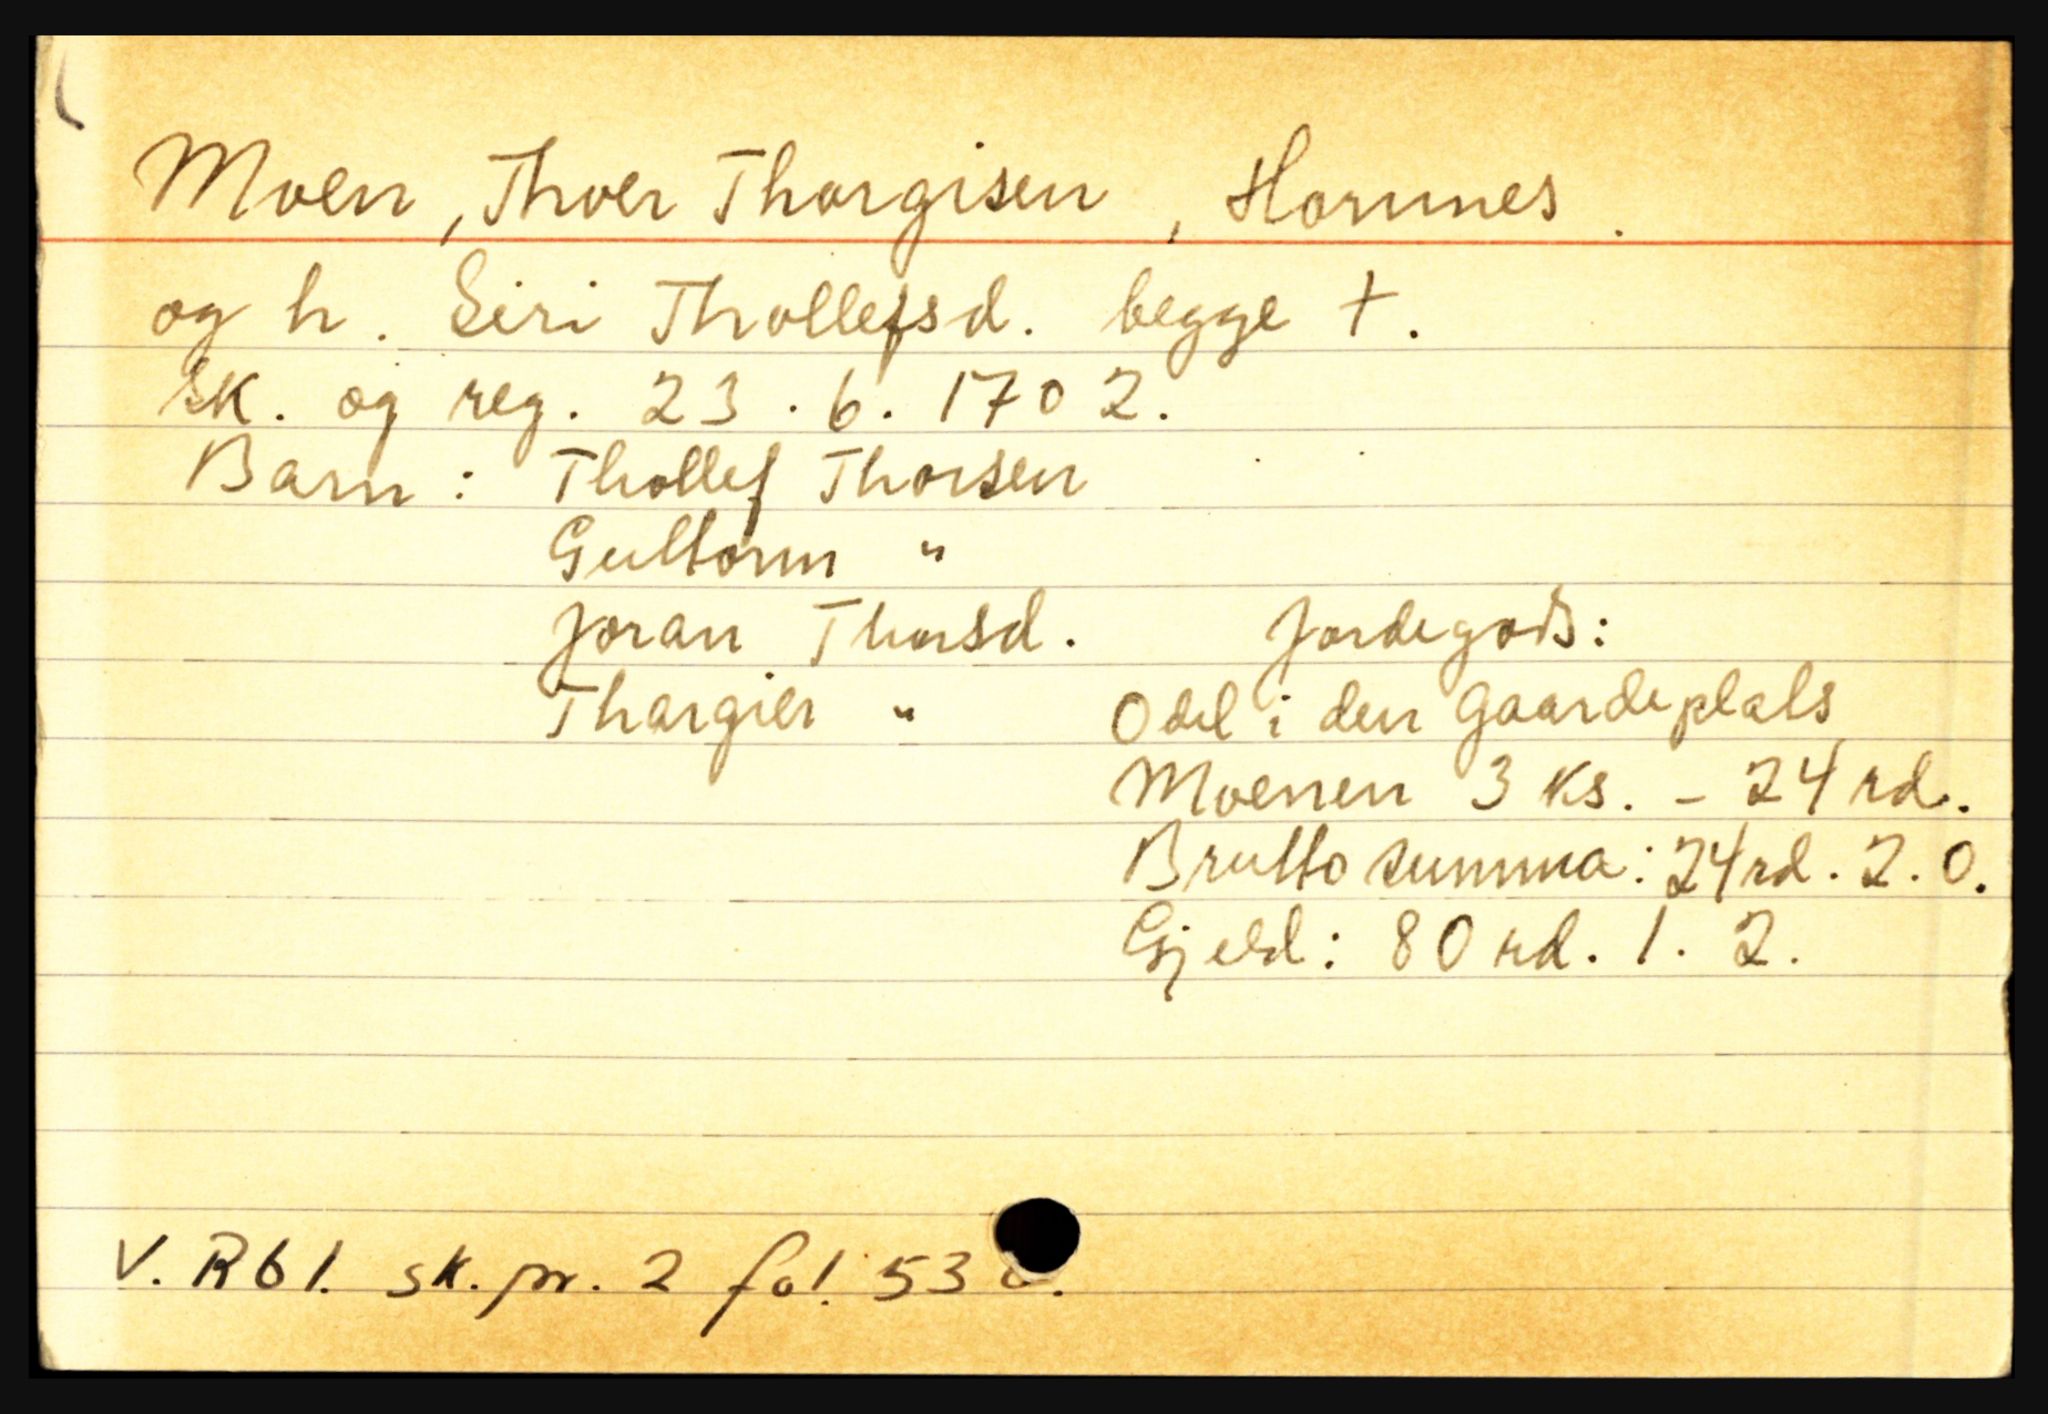 Moen, Thoer Thorgisen, Hornnes.
og h. Siri Thollefsd. begge †.
Sk. og reg. 23.6.1702.
Barn: Thollef Thorsen
Guttorm "
Joran Thorsd.
Thorgier "
Jordegods:
Odel i den Gaardeplats
Moenen 3 ks. - 24 rd.
Brutto summa: 24 rd. 2. 0.
Gjeld: 80 rd. 1. 2.
V. Rbl. sk. pr. 2 fol. 53